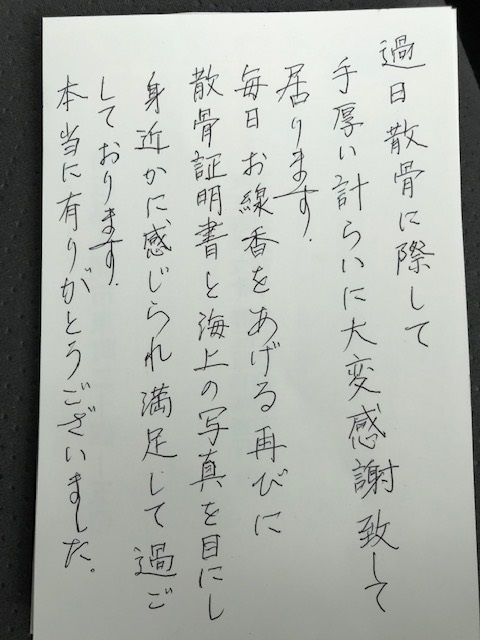 過日散骨に際して
手厚い計らいに大変感謝致して
居ります.
毎日お線香をあげる再びに
散骨証明書と海上の写真を目にし
身近かに感じられ満足して過ご
しております.
本当に有りがとうございました。